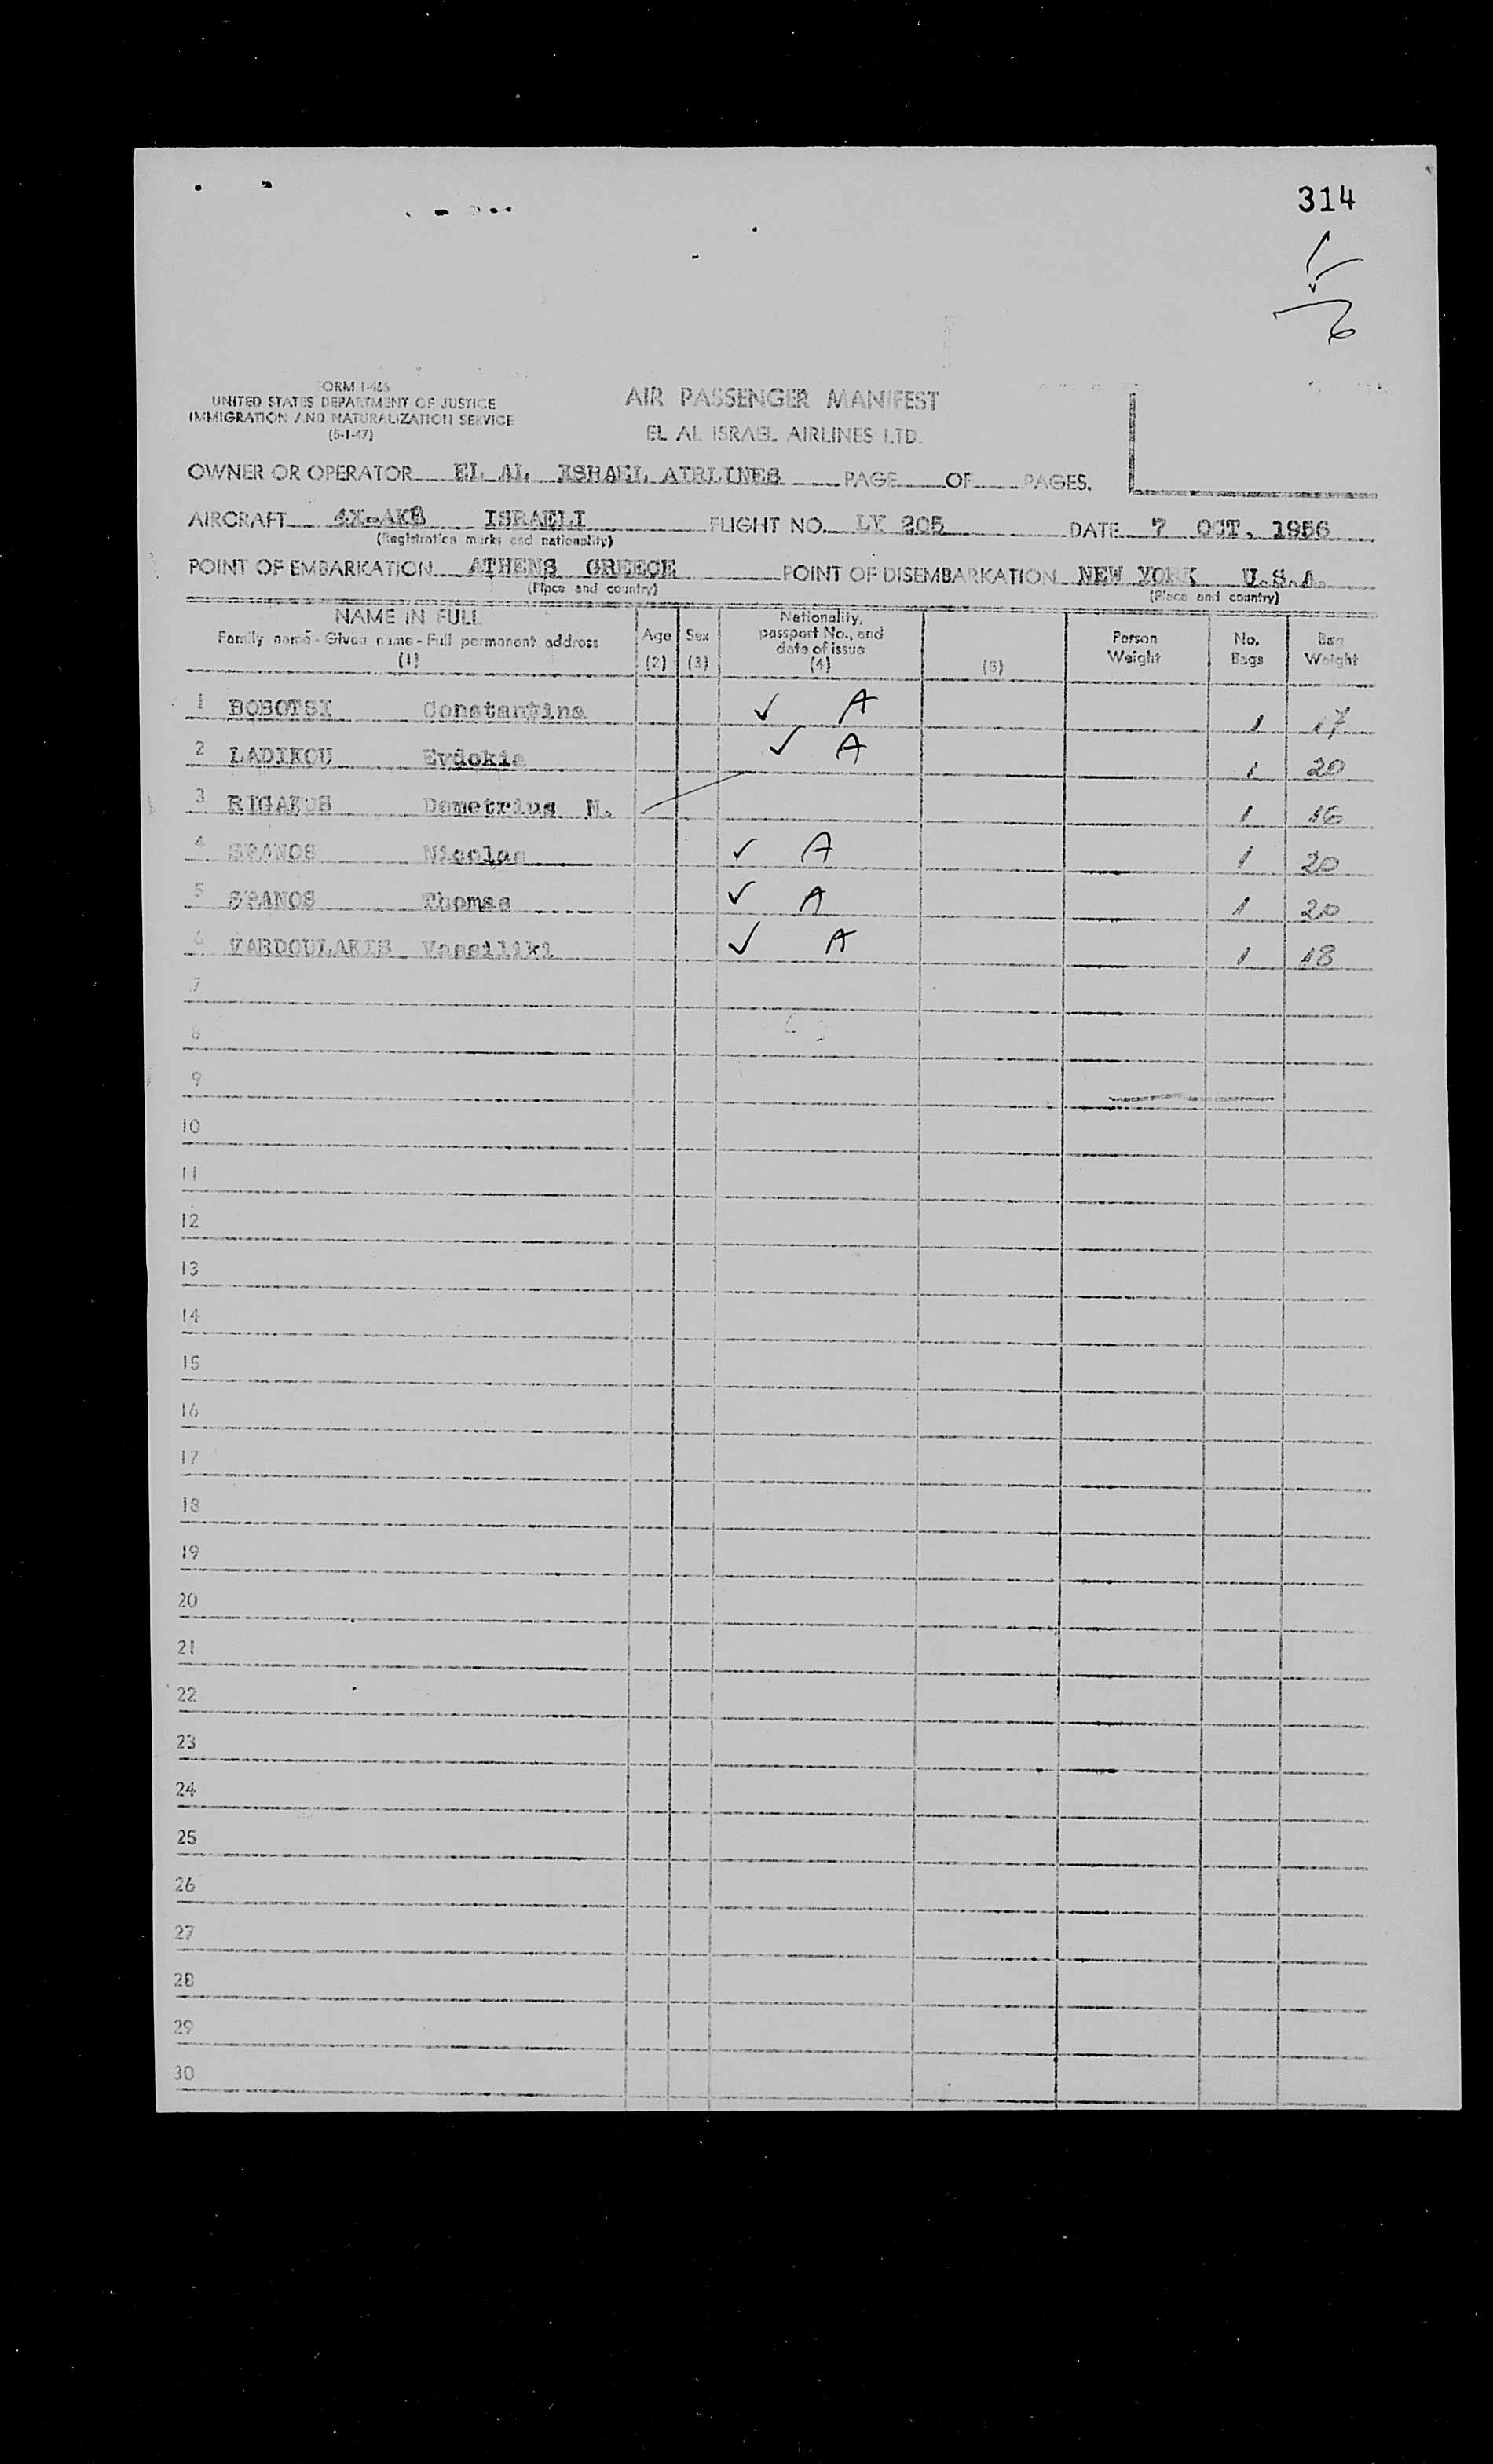 314
FORM I-466
UNITED STATES DEPARTMENT OF JUSTICE
IMMIGRATION AND NATURALIZATION SERVICE
(5-1-47)
AIR PASSENGER MANIFEST
EL AL ISRAEL AIRLINES LTD.
OWNER OR OPERATOR EL AL ISRAEL AIRLINES PAGE OF PAGES.
AIRCRAFT 4X-AKB ISRAELI FLIGHT NO. LY 205 DATE 7 OCT. 1956
(Registration marks and nationality)
POINT OF EMBARKATION ATHENS GREECE POINT OF DISEMBARKATION NEW YORK U.S.A.
(Place and country) (Place and country)
NAME IN FULL
Family name - Given name - Full permanent address
(1)
Age
(2)
Sex
(3)
Nationality,
passport No., and
date of issue
(4)
(5)
Person
Weight
No.
Bags
Bag
Weight
1 BOBOTSI Constantine ✓ A 1 17
2 LADIKOU Evdokia ✓ A 1 20
3 RIGAKOS Demetrius N. 1 16
4 SPANOS Nicolas ✓ A 1 20
5 SPANOS Thomas ✓ A 1 20
6 VARDOULAKIS Vassiliki ✓ A 1 18
7
8
9
10
11
12
13
14
15
16
17
18
19
20
21
22
23
24
25
26
27
28
29
30